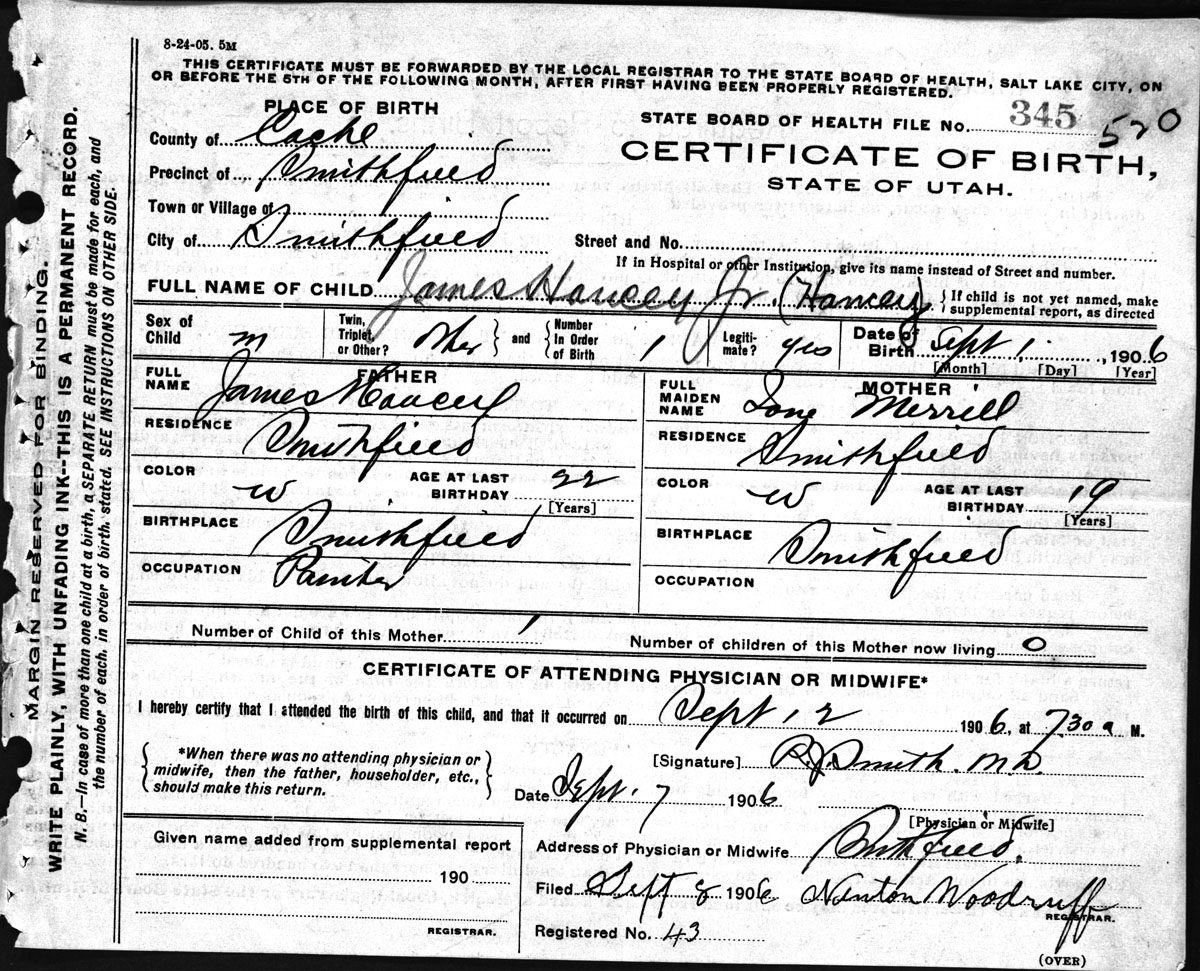 8-24-05. 5M
THIS CERTIFICATE MUST BE FORWARDED BY THE LOCAL REGISTRAR TO THE STATE BOARD OF HEALTH, SALT LAKE CITY, ON
OR BEFORE THE 5TH OF THE FOLLOWING MONTH, AFTER FIRST HAVING BEEN PROPERLY REGISTERED.
PLACE OF BIRTH
STATE BOARD OF HEALTH FILE No. 345 520
County of Cache
CERTIFICATE OF BIRTH,
STATE OF UTAH.
Precinct of Smithfield
Town or Village of
City of Smithfield
Street and No.
If in Hospital or other Institution, give its name instead of Street and number.
FULL NAME OF CHILD James Hancey Jr. (Hancey) { If child is not yet named, make
supplemental report, as directed
Sex of Child m
Twin, Triplet, or Other? other } and { Number In Order of Birth 1
Legiti-mate? yes
Date of Birth Sept 1 1906
[Month] [Day] [Year]
FATHER
FULL NAME James Hancey
RESIDENCE Smithfield
COLOR w AGE AT LAST BIRTHDAY 22
[Years]
BIRTHPLACE Smithfield
OCCUPATION Painter
MOTHER
FULL MAIDEN NAME Ione Merrill
RESIDENCE Smithfield
COLOR w AGE AT LAST BIRTHDAY 19
[Years]
BIRTHPLACE Smithfield
OCCUPATION
Number of Child of this Mother 1 Number of children of this Mother now living 0
CERTIFICATE OF ATTENDING PHYSICIAN OR MIDWIFE*
I hereby certify that I attended the birth of this child, and that it occurred on Sept 1 2 1906, at 730 a M.
{ *When there was no attending physician or
midwife, then the father, householder, etc.,
should make this return. }
[Signature] Smith. M.D.
Date Sept. 7 1906
[Physician or Midwife]
Address of Physician or Midwife Smithfield.
Filed Sept 8 1906 Newton Woodruff
REGISTRAR.
Registered No. 43
Given name added from supplemental report
190
REGISTRAR.
(OVER)
MARGIN RESERVED FOR BINDING.
WRITE PLAINLY, WITH UNFADING INK--THIS IS A PERMANENT RECORD.
N. B.—In case of more than one child at a birth, a SEPARATE RETURN must be made for each, and
the number of each, in order of birth, stated. SEE INSTRUCTIONS ON OTHER SIDE.